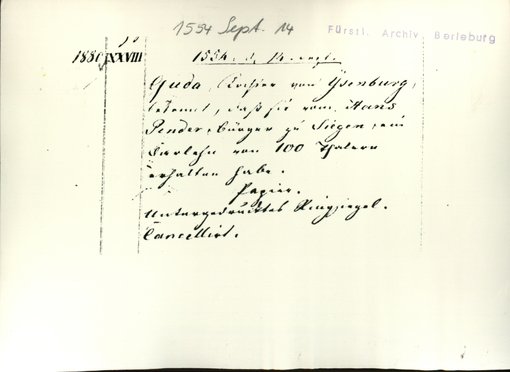 1554 Sept. 14
Fürstl. Archiv Berleburg
XXVIII
1554. d. 14. Sept.
Guda, Tochter von Ysenburg,
bekennt, daß sie vom Hans
Pender, Bürger zu Siegen, ein
Darlehn von 100 Thalern
erhalten habe.
Papier.
Untergedrucktes Ringsiegel.
Cancellirt.